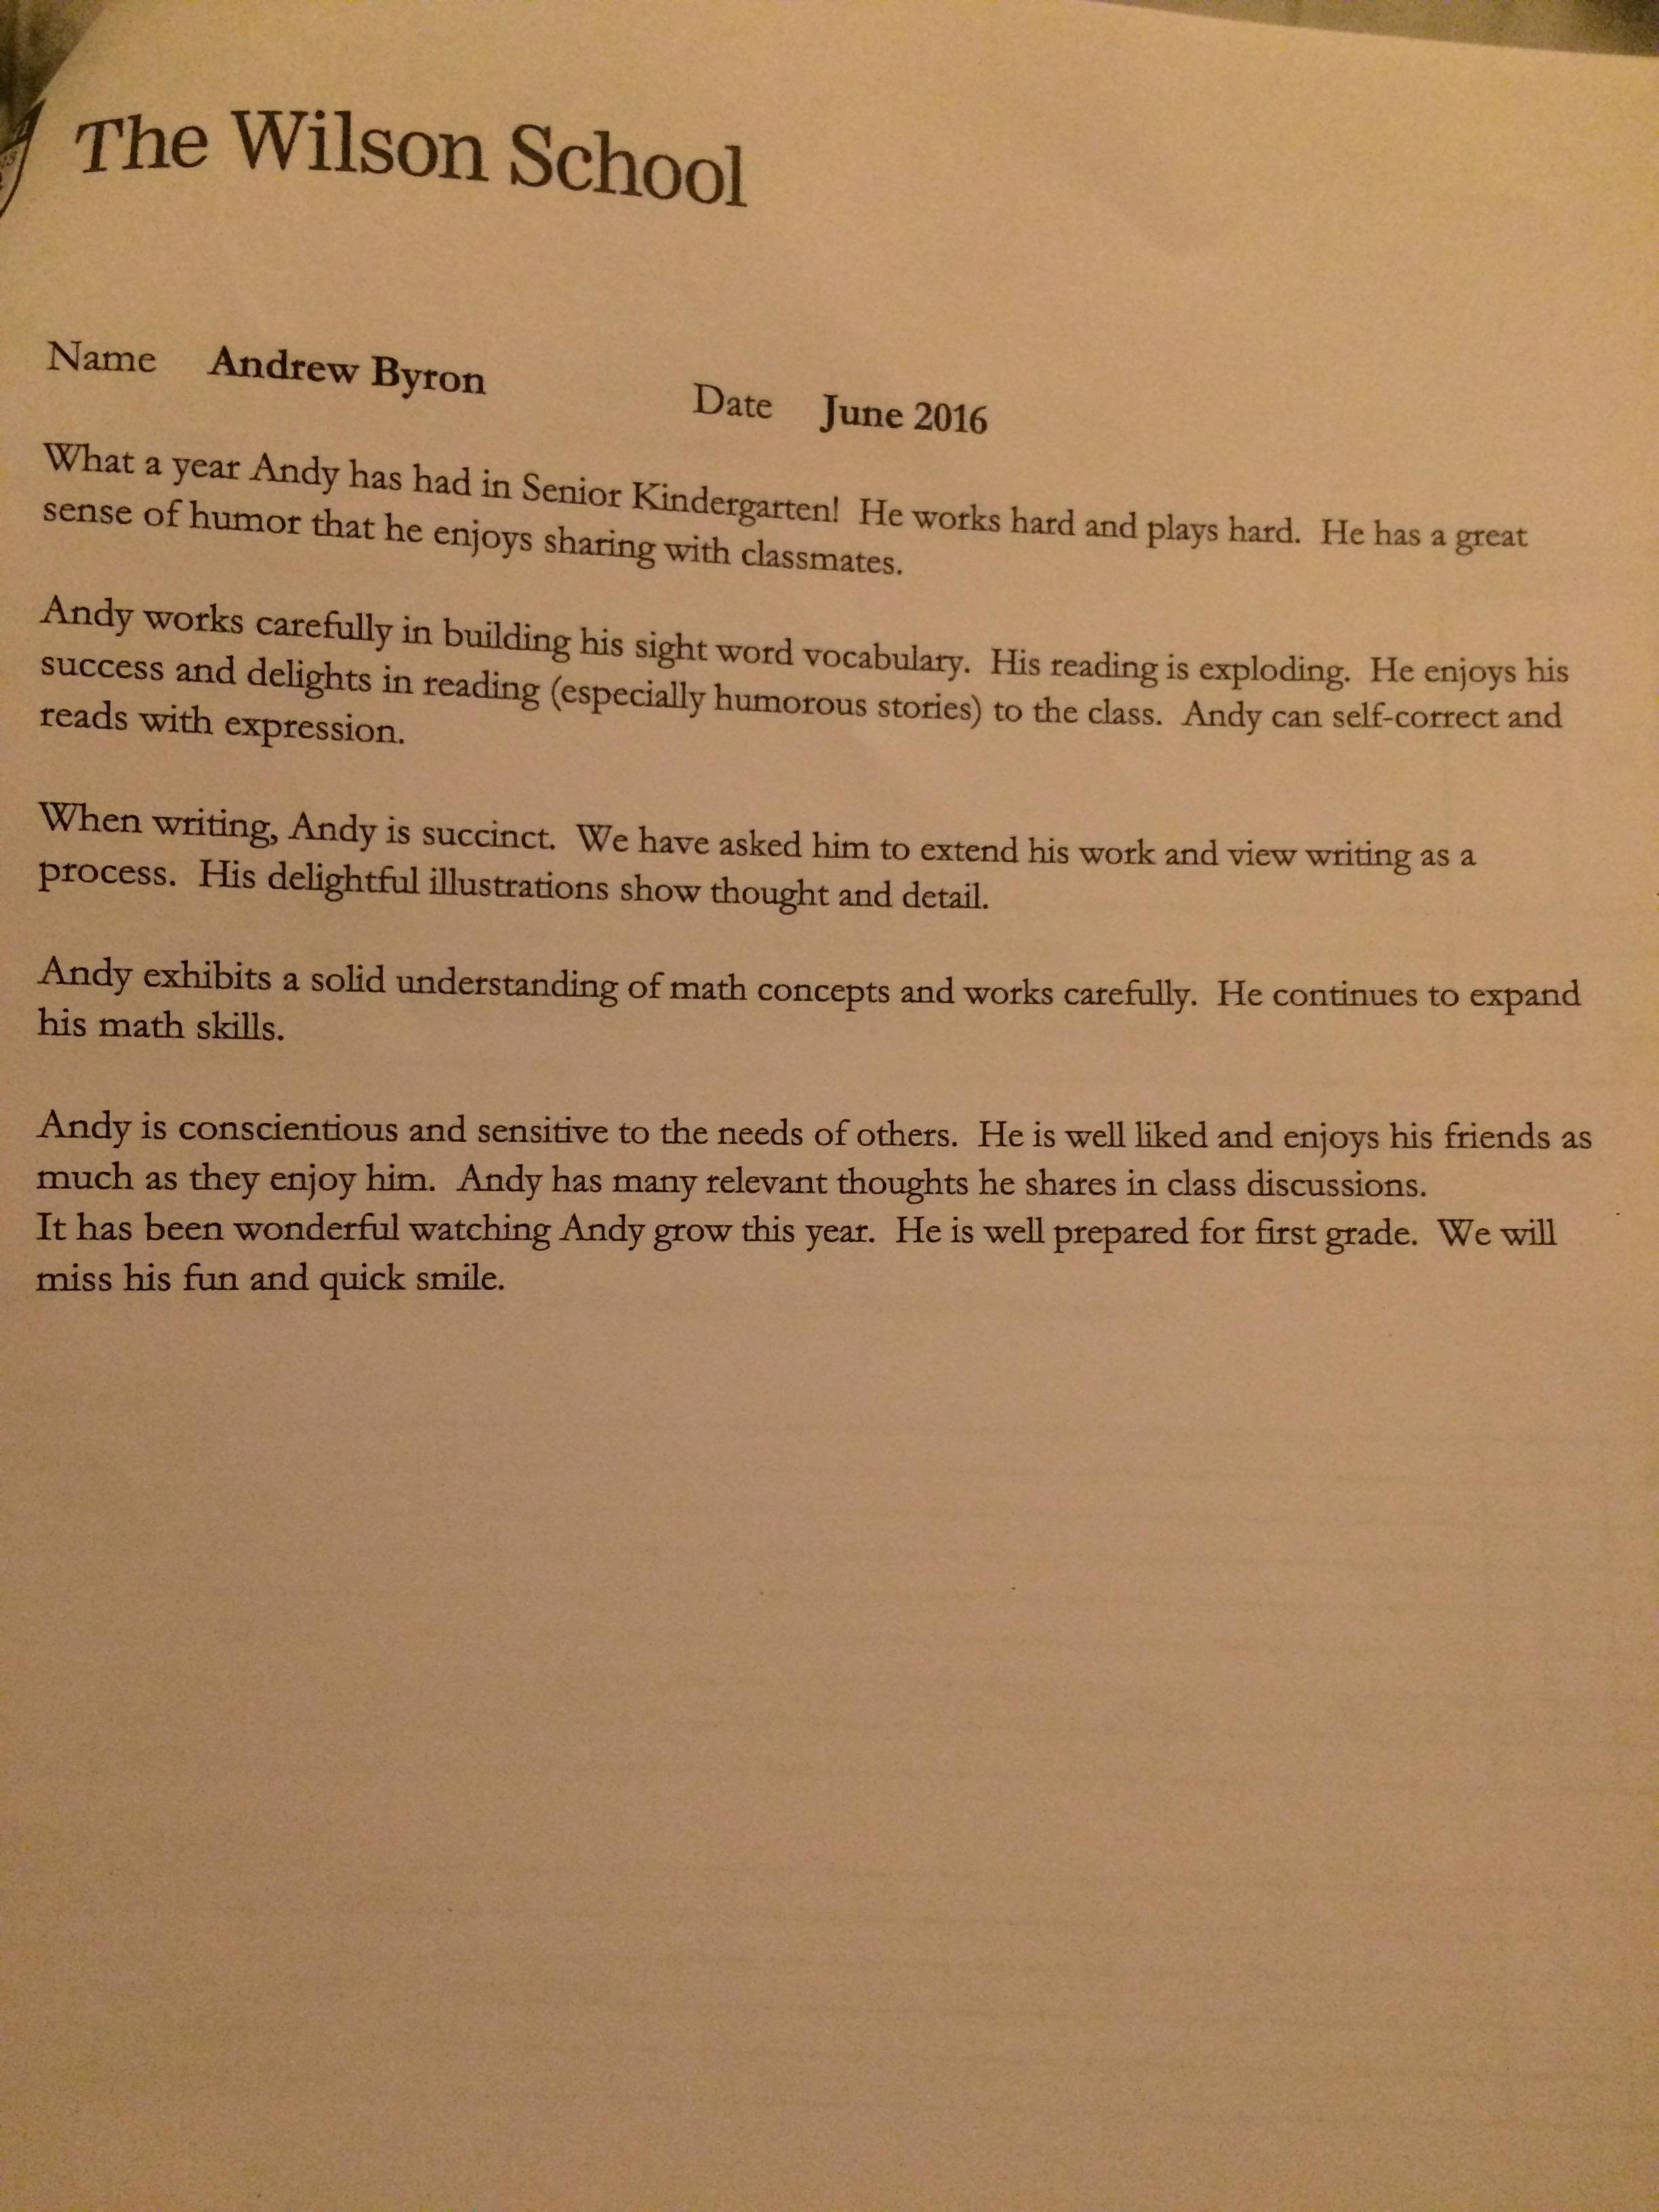 The Wilson School
Name Andrew Byron Date June 2016
What a year Andy has had in Senior Kindergarten!  He works hard and plays hard.  He has a great
sense of humor that he enjoys sharing with classmates.
Andy works carefully in building his sight word vocabulary.  His reading is exploding.  He enjoys his
success and delights in reading (especially humorous stories) to the class.  Andy can self-correct and
reads with expression.
When writing, Andy is succinct.  We have asked him to extend his work and view writing as a
process.  His delightful illustrations show thought and detail.
Andy exhibits a solid understanding of math concepts and works carefully.  He continues to expand
his math skills.
Andy is conscientious and sensitive to the needs of others.  He is well liked and enjoys his friends as
much as they enjoy him.  Andy has many relevant thoughts he shares in class discussions.
It has been wonderful watching Andy grow this year.  He is well prepared for first grade.  We will
miss his fun and quick smile.